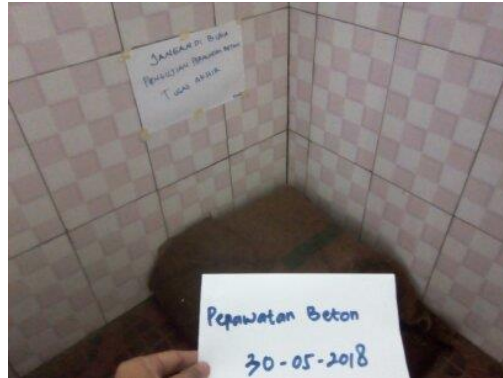 JANGAN DI BUKA
PENGUJIAN PERAWATAN BETON
TUGAS AKHIR
Perawatan Beton
30-05-2018